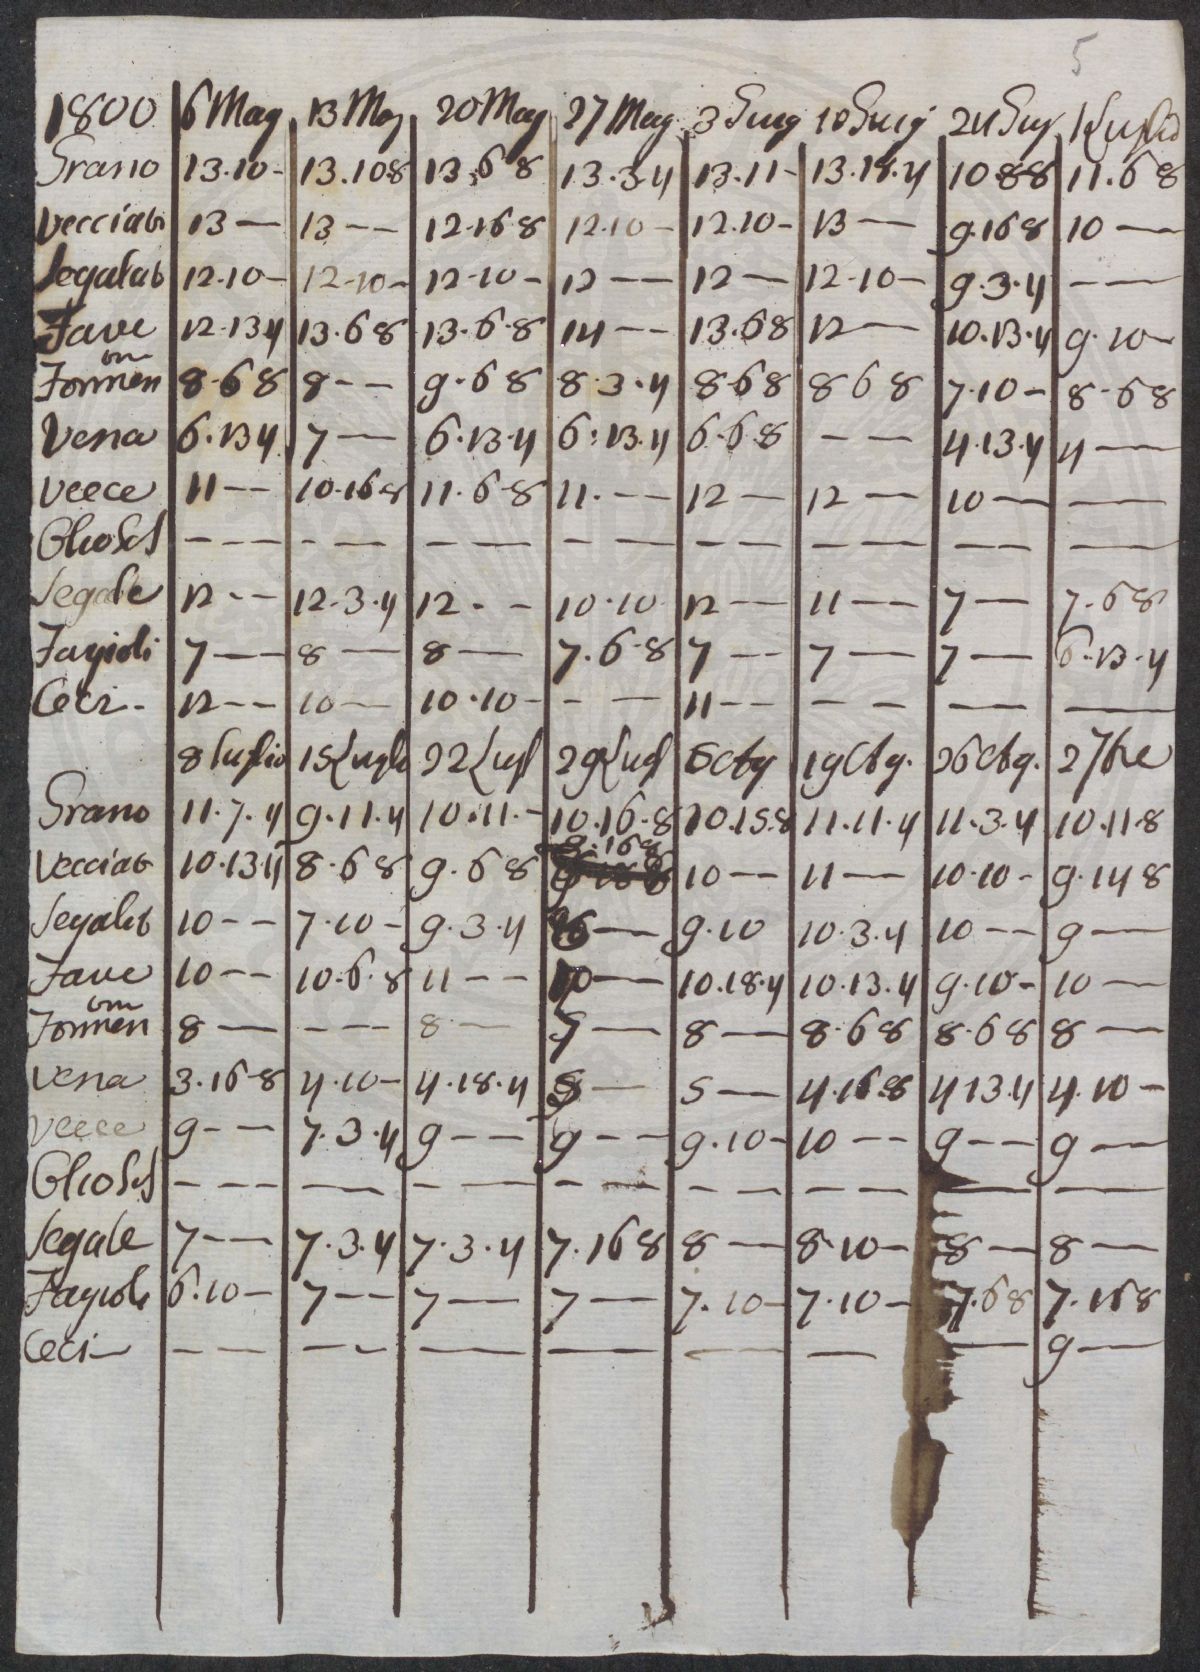 5
1800 6 Mag 13 Mag 20 Mag 27 Mag 3 Giug 10 Giug 24 Giug 1 Luglio
Grano 13.10- 13.10 8 13.6 8 13.3.4 13.11- 13.18.4 10 8 8 11.6 8
Vecciat 13 — 13 -- 12.16 8 12.10- 12.10- 13 — 9.16 8 10 —
Segalat 12.10- 12-10- 12-10- 12 -- 12 — 12-10- 9.3.4 ---
Fave 12.13 4 13.6 8 13.6.8 14 -- 13.6 8 12 — 10.13.4 9.10-
Formen
on
8.6 8 8-- 9.6 8 8.3.4 8.6 8 8 6 8 7.10- 8-6 8
Vena 6.13 4 7 — 6.13.4 6.13.4 6.6.8 --- 4.13.4 4 —
Vecce 11 -- 10.16 8 11.6-8 11.-- 12 — 12 — 10 — —
--- --- -- -- --- -- -- —
Segale 12 -- 12.3.4 12.-- 10.10 12 — 11 — 7 — 7.6 8
Fagioli 7 — 8 — 8 — 7.6-8 7 -- 7 — 7 — 6.13.4
Ceci- 12 -- 10 — 10.10- -- 11 -- -- -- —
8 Luglio 15 Lugl 22 Lugl 29 Lugl 5 Ag 19 Ag. 26 Ag. 2 7bre
Grano 11.7.4 9.11.4 10.11.- 10.16.8 10.15.8 11.11.4 11.3.4 10.11.8
Vecciat 10.13.4 8.6 8 9.6 8 9.16 8 10 -- 11 — 10.10- 9.14 8
Segalat 10 -- 7.10- 9.3.4 — 9.10 10.3.4 10 -- 9 —
Fave 10 -- 10.6.8 11 -- 10 — 10.18.4 10.13.4 9.10- 10 —
Formen
on
8 — --- 8 — — 8 — 8.6 8 8.6 8 8 —
Vena 3.16 8 4.10- 4.18.4 5 — 5 — 4.16.8 4 13.4 4.10-
Vecce 9 -- 7.3.4 9 -- 9 -- 9.10- 10 -- 9 -- 9 —
--- -- -- --- -- -- — —
Segale 7 -- 7.3.4 7.3.4 7.16 8 8 — 8.10- 8 — 8 —
Fagioli 6.10- 7 -- 7 — 7 — 7.10- 7.10- 7.6 8 7.16 8
Ceci- --- -- — — — — — 9 —